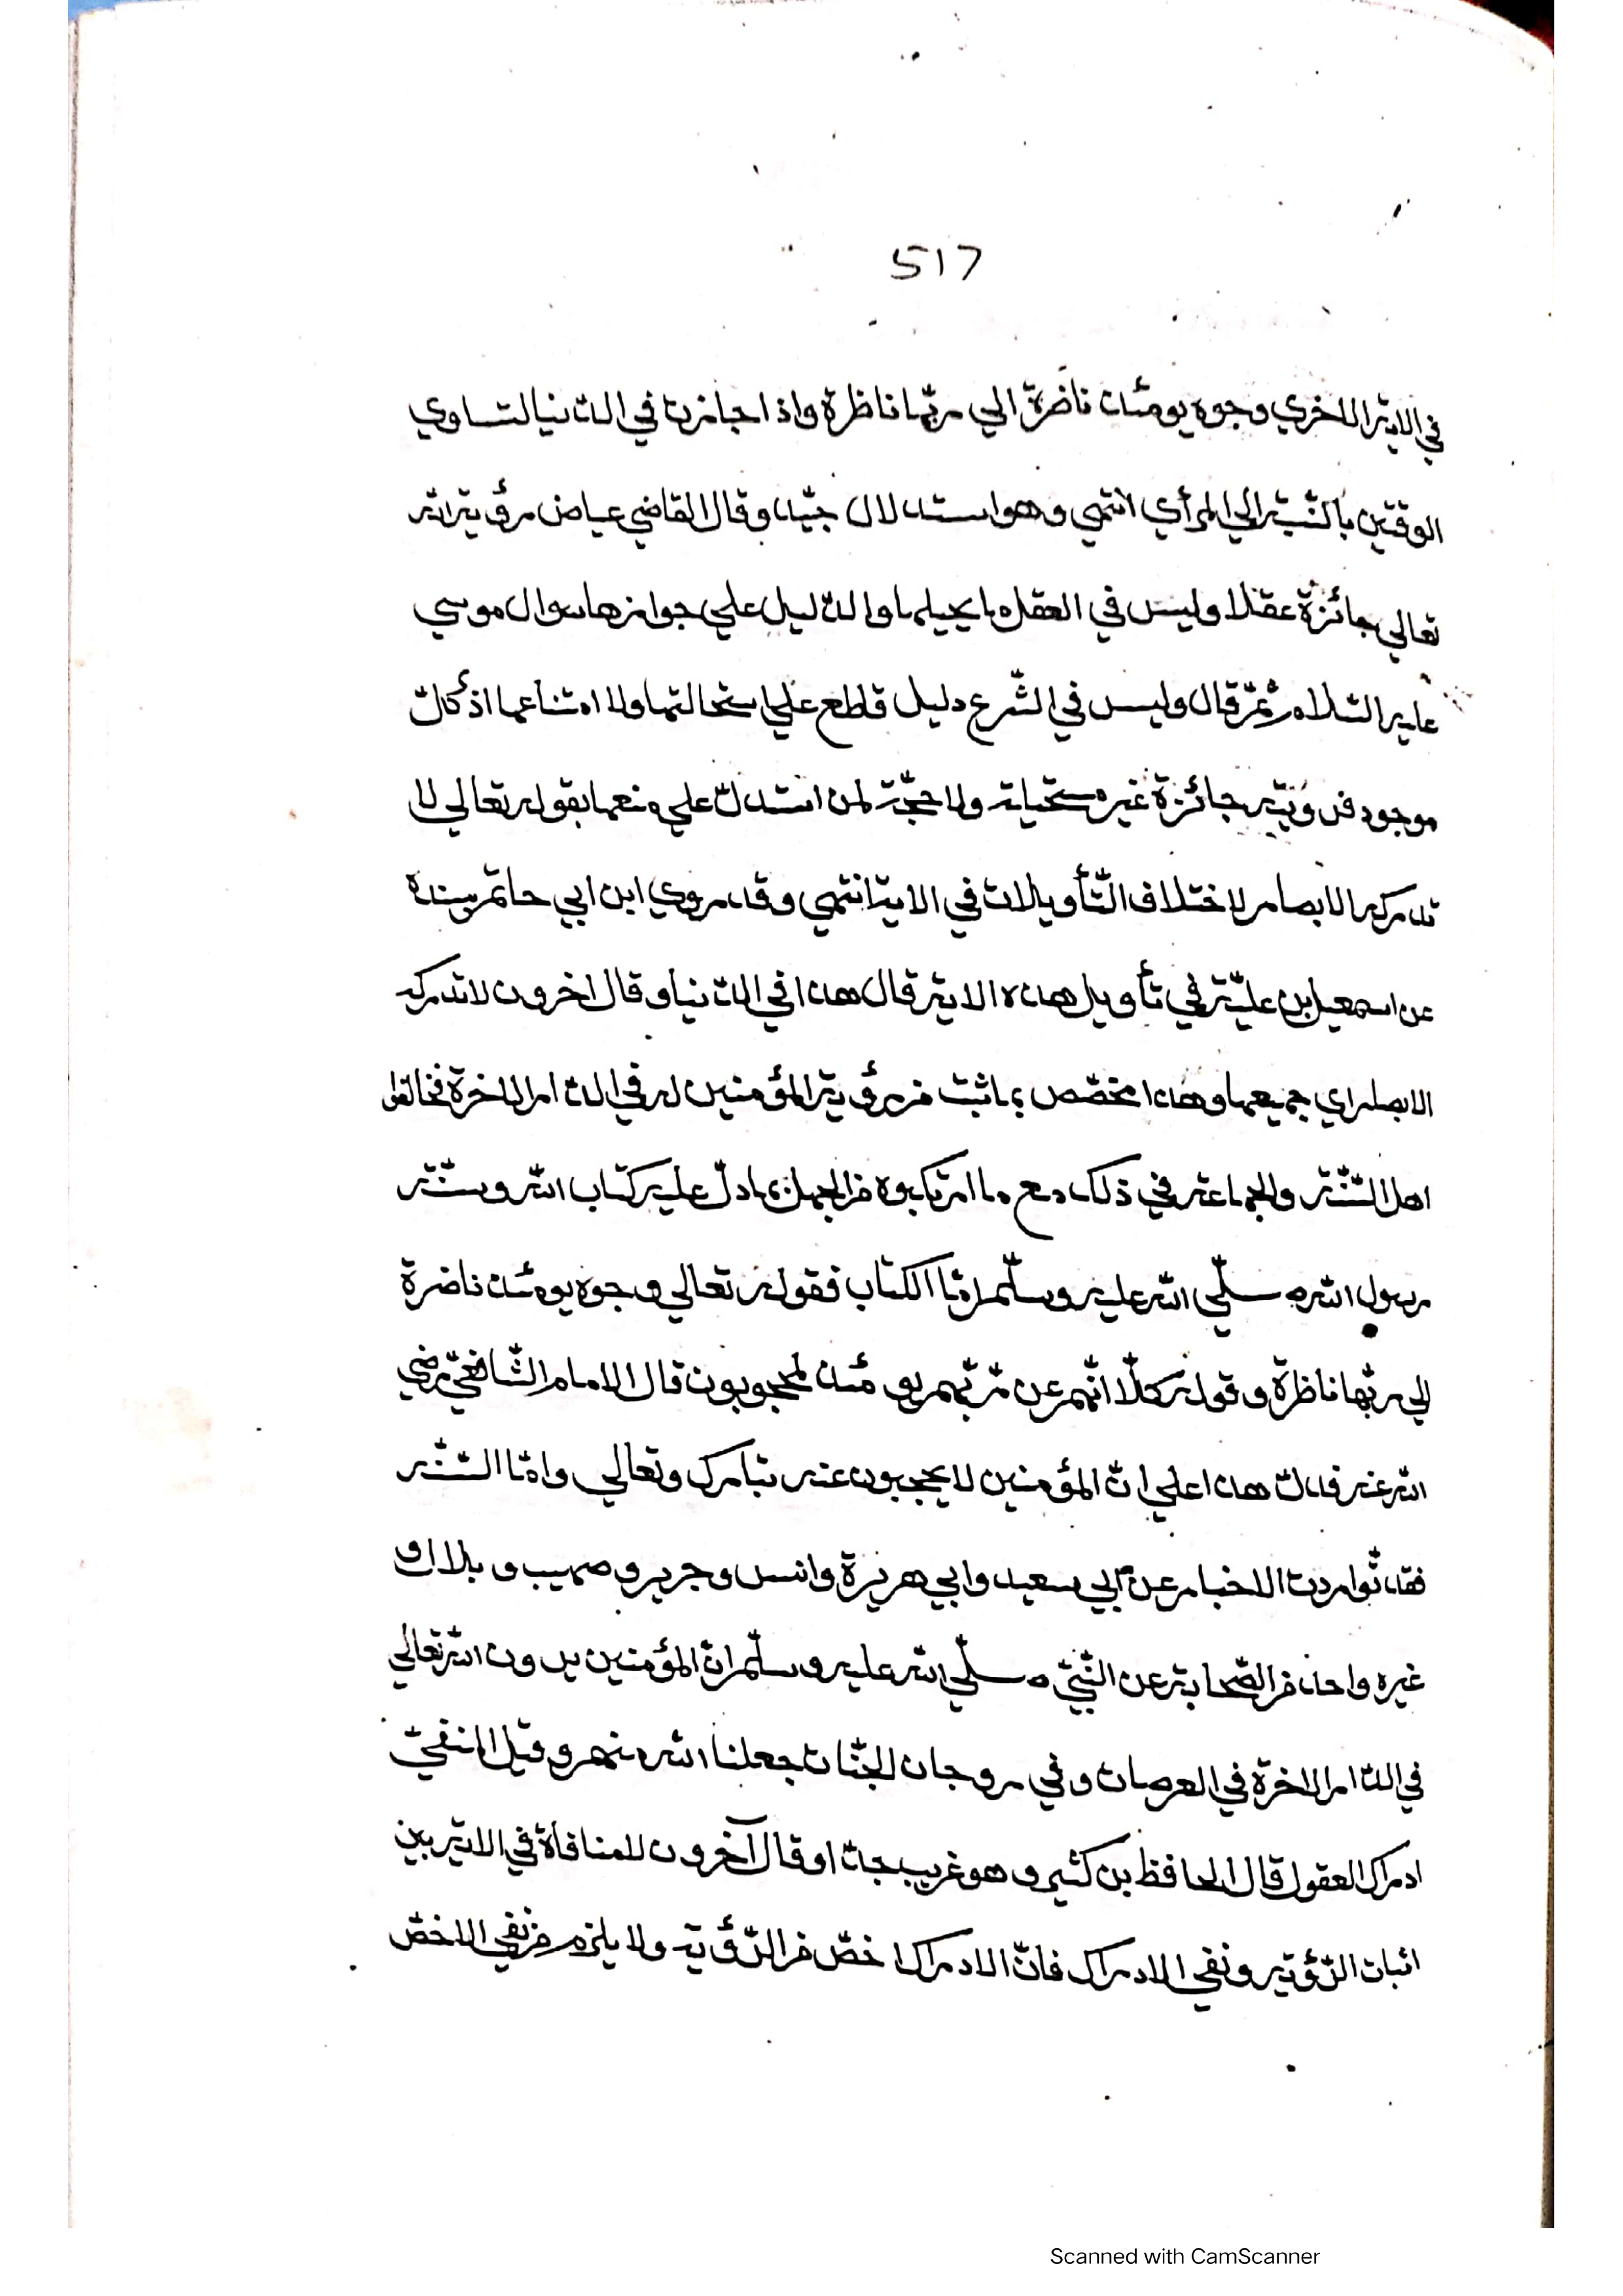 517
في الاية الاخري وجوه يومئذ ناضرة الي ربّها ناظرة واذا جازت في الدنيا لتساوي
الوقتين بالنّسبة الي المرأي انتهي وهو استدلال جيّد وقال القاضي عياض رؤية الله
تعالي جائزة عقلا وليس في العقل ما يحيلها والدّليل علي جوازها سوال موسي
عليه السّلام ثمّ قال وليس في الشّرع دليل قاطع علي استحالتها ولا امتناعها اذ كلّ
موجود فرؤيته جائزة غير مستحيلة ولا حجّة لمن استدلّ علي منعها بقوله تعالي لا
تدركه الابصار لاختلاف التّأويلات في الاية انتهي وقد روي ابن ابي حاتم بسنده
عن اسمعيل بن عليّة في تأويل هذه الاية قال هذا في الدّنيا وقال اخرون لا تدركه
الابصار اي جميعها وهذا مخصّص بما ثبت من رؤية المؤمنين له في الدّار الاخرة فخالفوا
اهل السّنّة والجماعة في ذلك مع ما ارتكبوه من الجهل بما دلّ عليه كتاب الله وسنّة
رسول الله صلّي الله عليه وسلّم امّا الكتاب فقوله تعالي وجوه يومئذ ناضرة
الي ربّها ناظرة وقوله كلّا انّهم عن رّبّهم يومئذ لمحجوبون قال الامام الشّافعيّ رضي
الله عنه فدلّ هذا علي انّ المؤمنين لا يحجبون عنه تبارك وتعالي وامّا السّنّة
فقد تواردت الاخبار عن ابي سعيد وابي هريرة وانس وجرير وصهيب وبلال و
غيره واحد من الصّحابة عن النّبيّ صلّي الله عليه وسلّم انّ المؤمنين يرون الله تعالي
في الدّار الاخرة في العرصات وفي روجات الجنّات جعلنا الله منهم وقيل المنفيّ
ادراك العقول قال الحافظ بن كثير وهو غريب جدّا وقال آخرون لا منافاة في الاية بين
اثبات الرّؤية ونفي الادراك فانّ الادراك اخصّ من الرّؤية ولا يلزم من نفي الاخصّ
Scanned with CamScanner